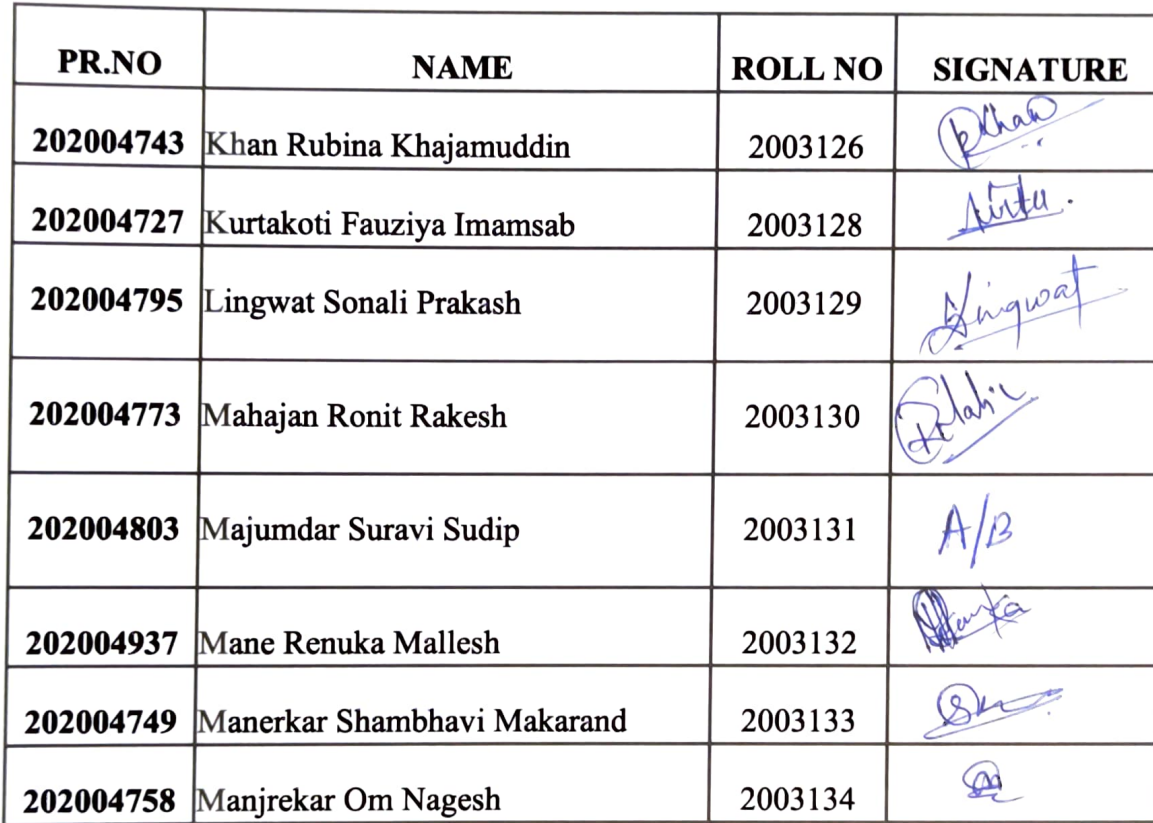 PR.NO NAME ROLL NO SIGNATURE
202004743 Khan Rubina Khajamuddin 2003126 Khan
202004727 Kurtakoti Fauziya Imamsab 2003128
202004795 Lingwat Sonali Prakash 2003129 Lingwat
202004773 Mahajan Ronit Rakesh 2003130
202004803 Majumdar Suravi Sudip 2003131 A/B
202004937 Mane Renuka Mallesh 2003132
202004749 Manerkar Shambhavi Makarand 2003133
202004758 Manjrekar Om Nagesh 2003134